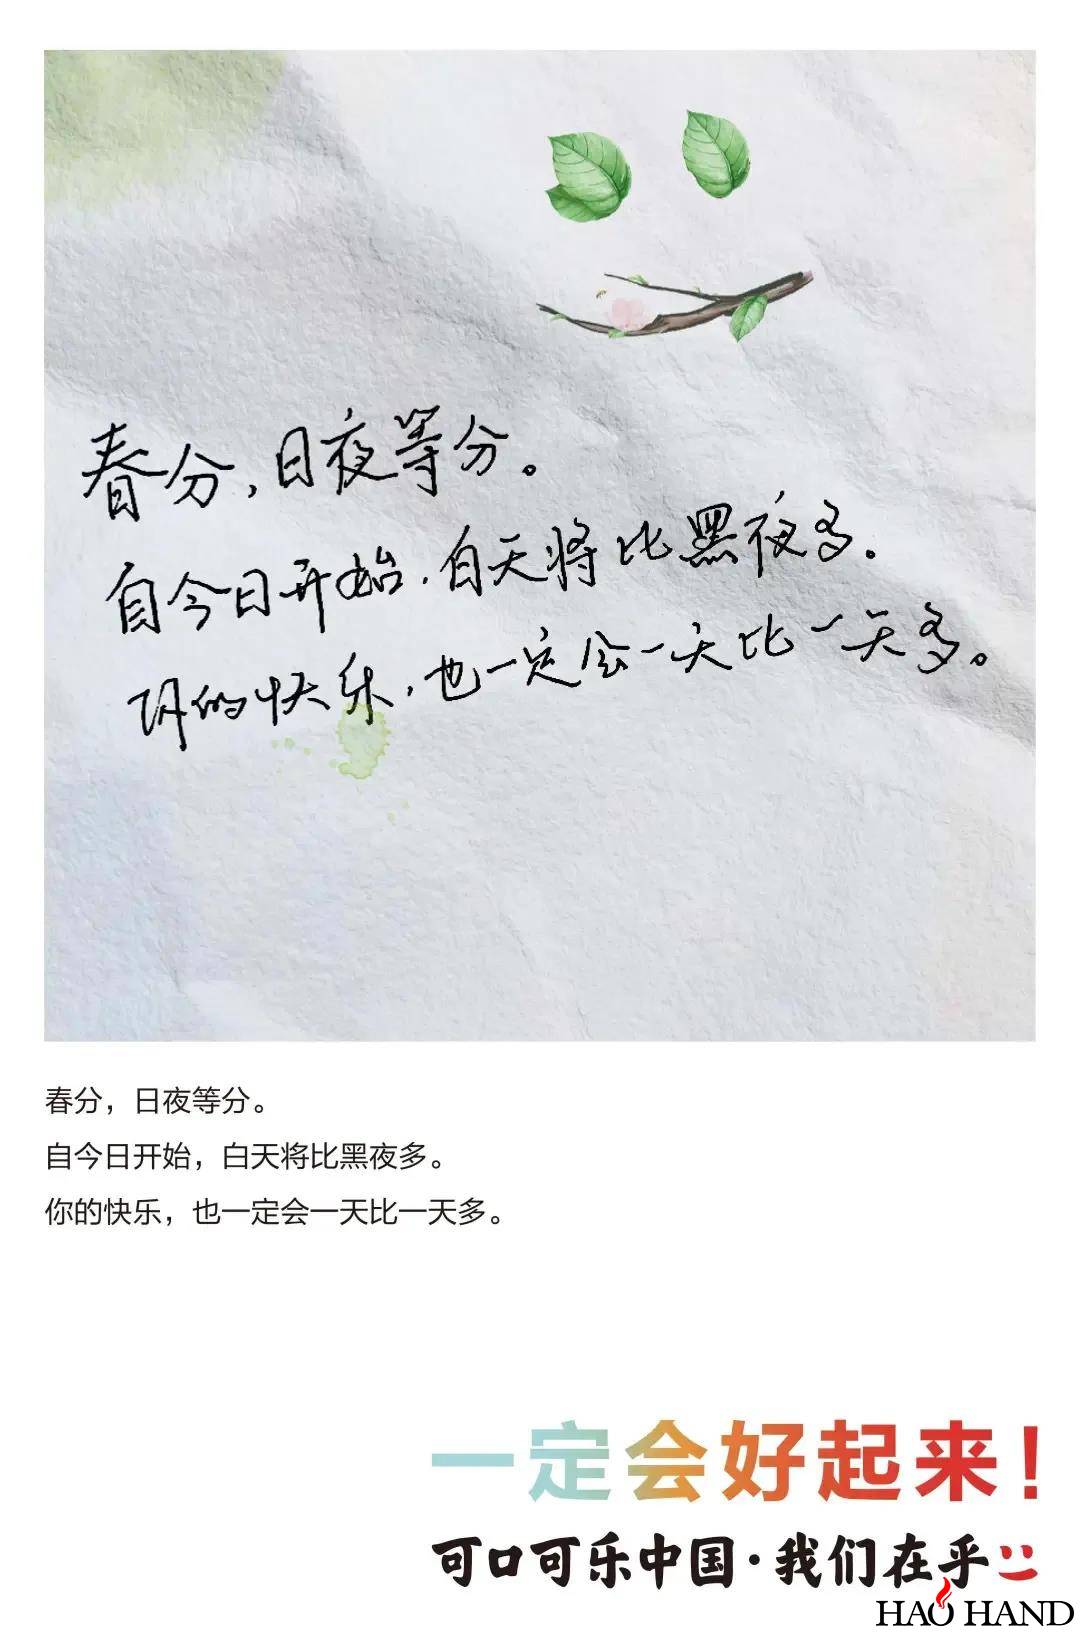 春分，日夜等分。
自今日开始，白天将比黑夜多。
你的快乐，也一定会一天比一天多。
春分，日夜等分。
自今日开始，白天将比黑夜多。
你的快乐，也一定会一天比一天多。
一定会好起来！
可口可乐中国·我们在乎
HAO HAND